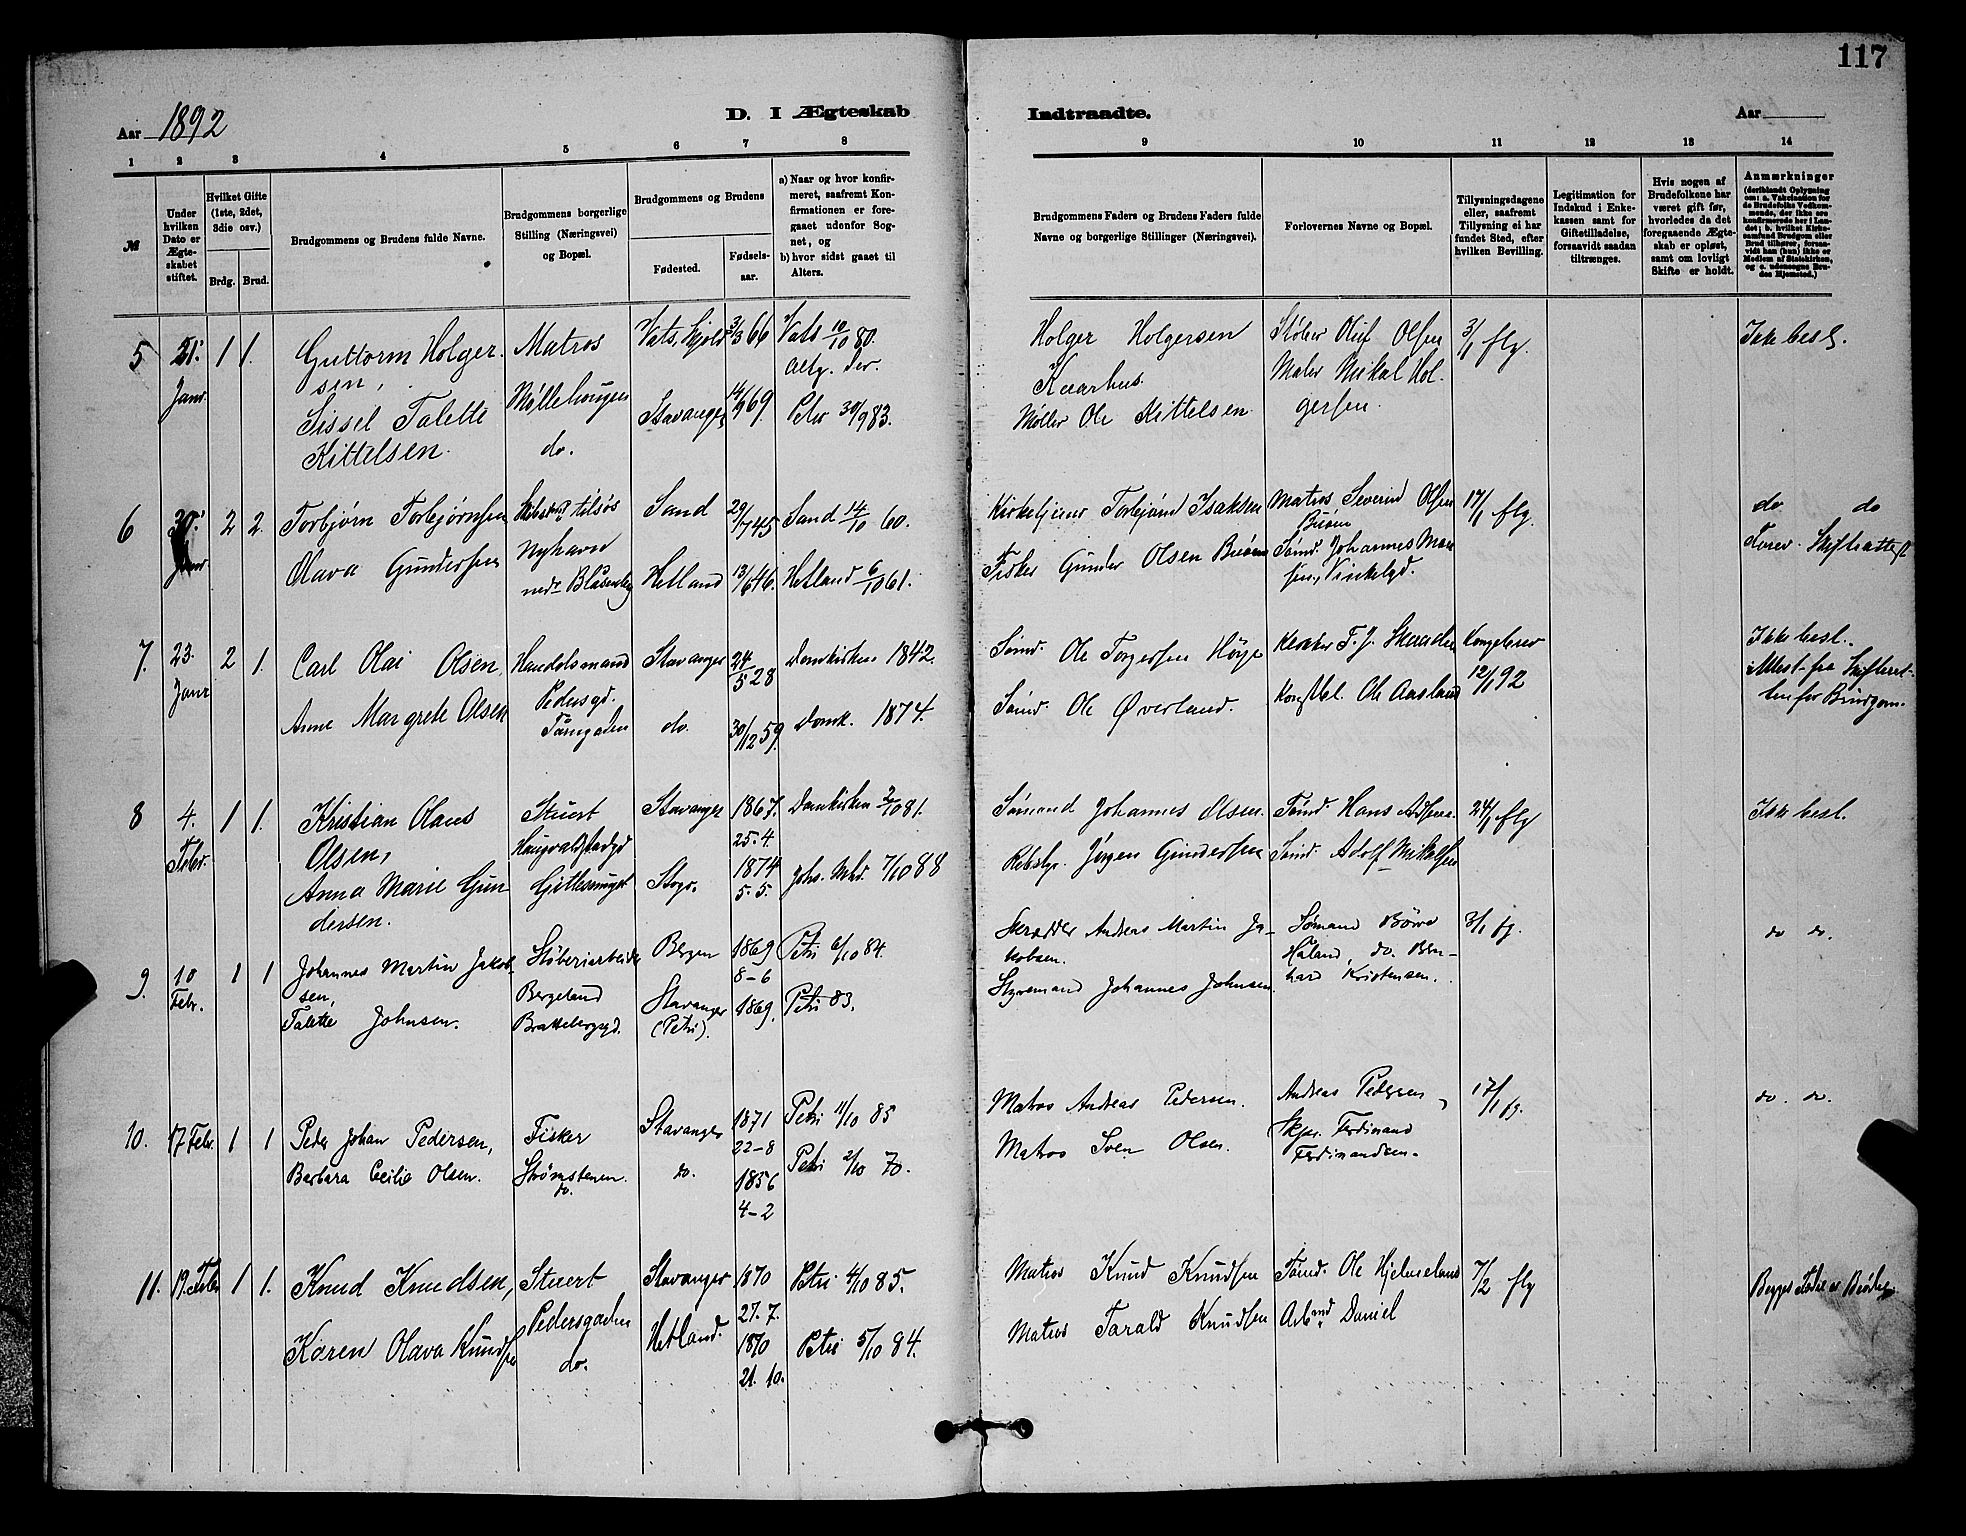 117
Aar 1892
D. I Ægteskab
Indtraadte.
Aar
1 2 3 4 5 6 7 8 9 10 11 12 13 14
№
Under hvilken Dato er Ægteskabet stiftet.
Hvilket Gifte (1ste, 2det, 3die osv.)
Brdg. Brud.
Brudgommens og Brudens fulde Navne.
Brudgommens borgerlige Stilling (Næringsvei) og Bopæl.
Brudgommens og Brudens
Fødested.
Fødselsaar.
a) Naar og hvor konfirmeret, saafremt Konfirmationen er foregaaet udenfor Sognet, og
b) hvor sidst gaaet til Alters.
Brudgommens Faders og Brudens Faders fulde Navne og borgerlige Stillinger (Næringsvei).
Forlovernes Navne og Bopæl.
Tillysningsdagene eller, saafremt Tillysning ei har fundet Sted, efter hvilken Bevilling.
Legitimation for Indskud i Enkekassen samt for Giftetilladelse, forsaavidt saadan tiltrænges.
Hvis nogen af Brudefolkene har været gift før, hvorledes da det foregaaende Ægteskab er opløst, samt om lovligt Skifte er holdt.
Anmærkninger
(deriblandt Oplysning om: a. Vakcination for de Brudefolks Vedkommende, der ikke ere konfirmerede her i Landet; b. hvilket Kirkesamfund Brudgom eller Brud tilhører, forsaavidt han (hun) ikke er Medlem af Statskirken, og c. udensogns Brudes Hjemsted.)
5 Janr. 1 1.
Guttorm Holgersen,
Sissel Talette Kittelsen.
Matros
Møllehougen
do.
Vats, Skjold 3/3 66 Vats 10/10 80. altg. der.
Stavanger 14/9 69. Petri 30/9 83.
Holger Holgersen
Møller Ole Kittelsen
Støber Oluf Olsen
Maler Mikal Holgersen.
3/1 flg.
Ikke besl.
6 Janr 2 2.
Torbjørn Torbjørnsen
Olava Gundersen
Nyhavn
nedr Blåsenbg
Sand 29/7 45 Sand 14/10 60.
Hetland 13/6 46. Hetland 6/10 61.
Kirketjener Torbjørn Isaksen
Fisker Gunder Olsen
Matros Severin Olsen
Sømd. Johannes
17/1 flg.
do do
7. 23. Janr 2 1.
Carl Olai Olsen,
Anne Margrete Olsen
Handelsmand
Pedersgd.
Stavanger 24/5 28 Domkirken 1842.
do. 30/12 59. Domk. 1874.
Sømd. Ole Torgersen Høge
Sømd. Ole Øverland.
Konstbl. Ole Aasland
Kongebrev 12/1 92
Ikke besl.
Attest fra Skifteretten for Brudgom.
8 4. Febr. 1 1.
Kristian Olaus Olsen,
Anna Marie Gundersen.
Stuert
Stavanger 1867. 25.4. Domkirken 2/10 81.
1874 5.5. Johs. Mkd. 7/10 88
Sømand Johannes Olsen.
Rebslgr. Jørgen Gundersen
Sømd. Adolf Mikelsen
24/1 flg
Ikke besl.
9. 10 Febr. 1 1
Johannes Martin Jakobsen,
Talette Johnsen.
Støberiarbeider
Bergeland
Brattebergsgd.
Bergen 1869 8-6 Petri 6/10 84.
Stavanger (Petri). 1869. Petri 83.
Skrædder Andreas Martin Jakobsen.
Styrmand Johannes Johnsen.
Sømand Børre Håland, do. Bernhard Kristensen.
3/1 fg.
do do.
10. 17 Febr. 1 1
Peder Johan Pedersen,
Barbara Cecilie Olsen.
Fisker
Strømstenen.
do.
Stavanger 1871 22-8 Petri 11/10 85
do. 1856 4-2 Petri 2/10 70.
Matros Andreas Pedersen.
Matros Sven Olsen.
Andreas Pedersen,
Skpr. Ferdinand Ferdinandsen.
17/1 fg.
do. do.
11. 19. Febr 1 1.
Knud Knudsen,
Karen Olava Knudsen
Stuert
Pedersgaden
do.
Stavanger 1870 27.7. Petri 4/10 85.
Hetland. 1870 21.10. Petri 5/10 84.
Matros Knud Knudsen
Matros Tarald Knudsen
Tømd. Ole Hjelmeland
Arbmd Daniel
7/2 flg
Begges Fædre er Brødre